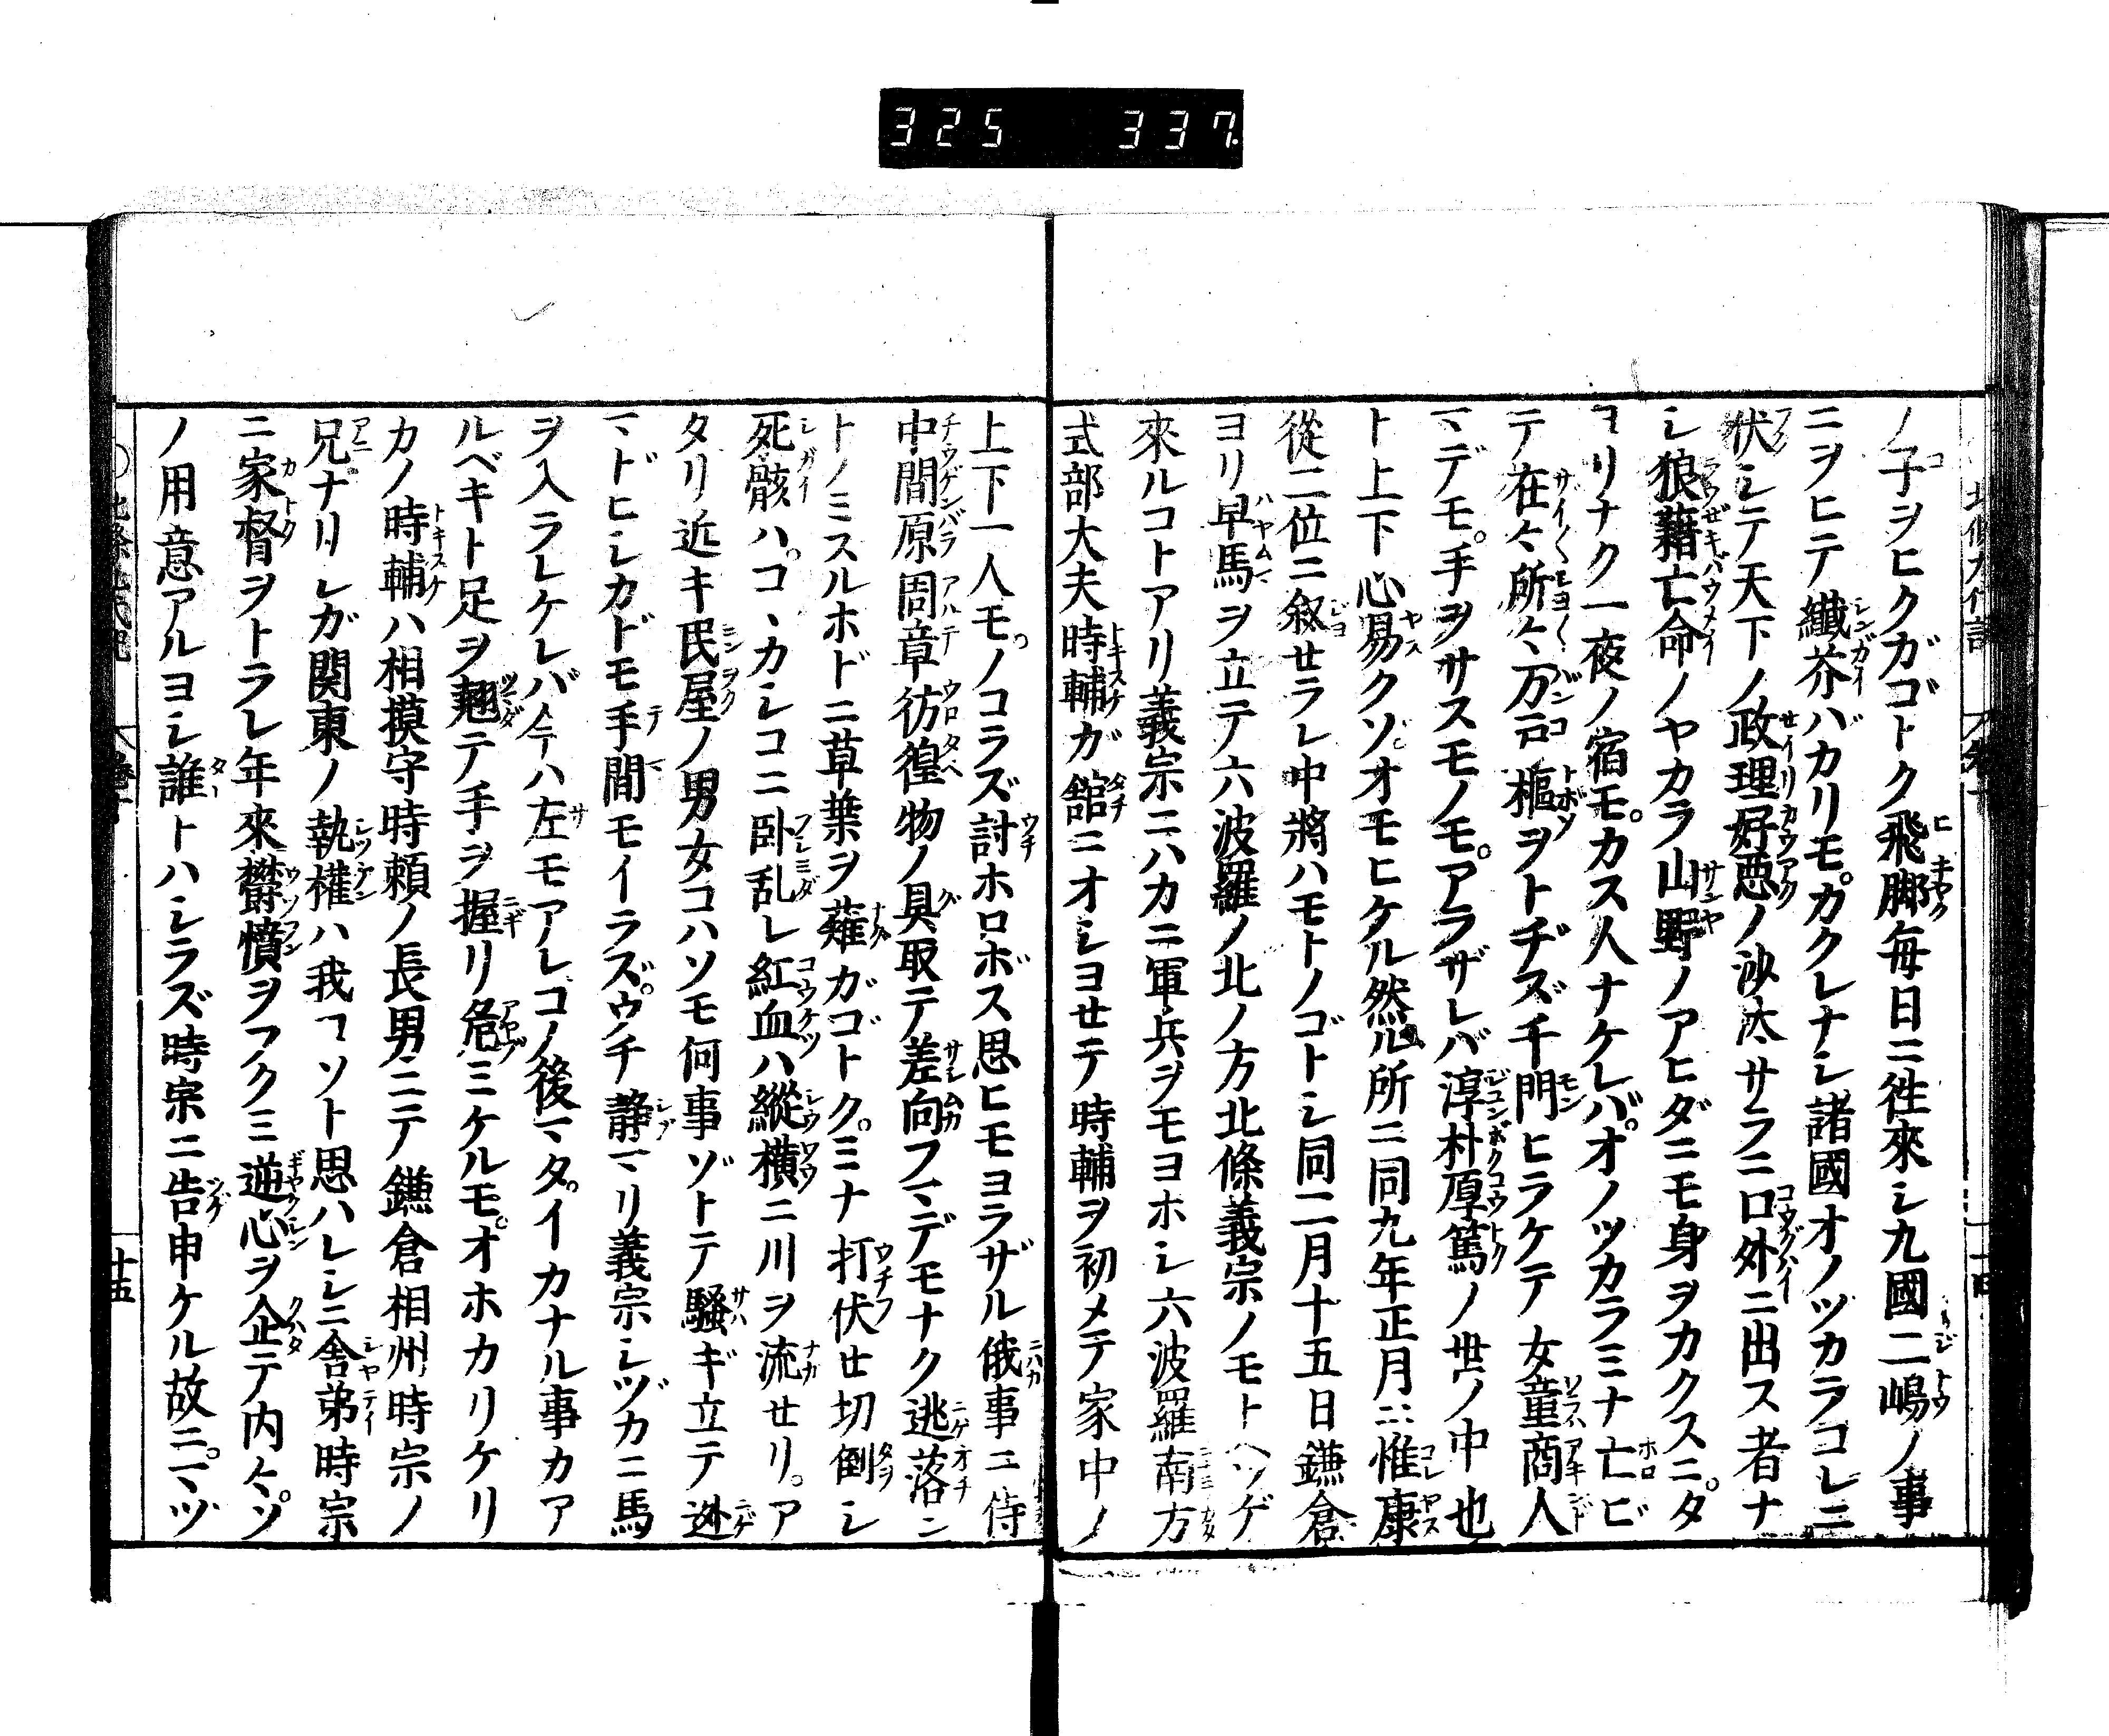 325 337
ノ子ヲヒクガゴトク飛脚毎日ニ徃來シ九國二嶋ノ事
ニヲヒテ纎芥バカリモカクレナシ諸國オノツカラコレニ
伏シテ天下ノ政理好悪ノ沙汰サラニ口外ニ出ス者ナ
シ狼藉亡命ノヤカラ山野ノアヒダニモ身ヲカクスニタ
ヨリナク一夜ノ宿モカス人ナケレバオノツカラミナ亡ビ
テ在々所々万戸樞ヲトヂズ千門ヒラケテ女童商人
マデモ手ヲサスモノモアラザレバ淳朴厚篤ノ世ノ中也
ト上下心易クソオモヒケル然ル所ニ同九年正月ニ惟康
從二位ニ叙セラレ中將ハモトノゴトシ同二月十五日鎌倉
ヨリ早馬ヲ立テ六波羅ノ北ノ方北條義宗ノモトヘツゲ
來ルコトアリ義宗ニハカニ軍兵ヲモヨホシ六波羅南方
式部大夫時輔ガ舘ニオシヨセテ時輔ヲ初メテ家中ノ
上下一人モノコラズ討ホロボス思ヒモヨラザル俄事ニ侍
中間原周章彷徨物ノ具取テ差向フマデモナク逃落ン
トノミスルホドニ草葉ヲ薙ガゴトクミナ打伏セ切倒シ
死骸ハコヽカシコニ卧乱レ紅血ハ縱横ニ川ヲ流セリア
タリ近キ民屋ノ男女コハソモ何事ゾトテ騒ギ立テ迯
マドヒシカドモ手間モイラズウチ静マリ義宗シヅカニ馬
ヲ入ラレケレバ今ハ左モアレコノ後マタイカナル事カア
ルベキト足ヲ翹テ手ヲ握リ危ミケルモオホカリケリ
カノ時輔ハ相摸守時頼ノ長男ニテ鎌倉相州時宗ノ
兄ナリシガ関東ノ執権ハ我コソト思ハレシニ舎弟時宗
ニ家督ヲトラレ年來欝憤ヲフクミ逆心ヲ企テ内々ソ
ノ用意アルヨシ誰トハシラズ時宗ニ告申ケル故ニマヅ
十五